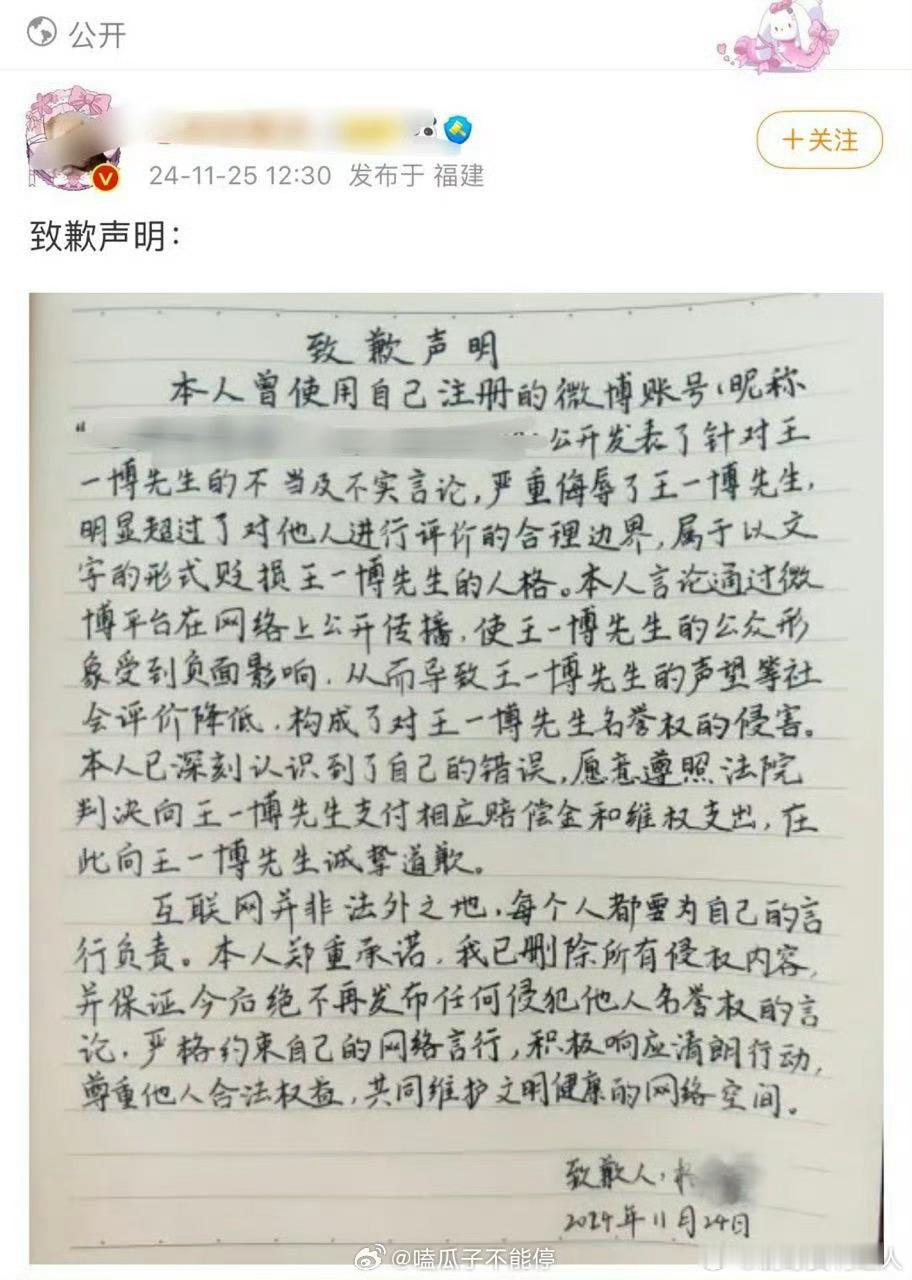 公开
+关注
24-11-25 12:30 发布于 福建
致歉声明:
致歉声明
本人曾使用自己注册的微博账号(昵称
“公开发表了针对王
一博先生的不当及不实言论,严重侮辱了王一博先生,
明显超过了对他人进行评价的合理边界,属于以文
字的形式贬损王一博先生的人格。本人言论通过微
博平台在网络上公开传播,使王一博先生的公众形
象受到负面影响,从而导致王一博先生的声望等社
会评价降低,构成了对王一博先生名誉权的侵害。
本人已深刻认识到了自己的错误,愿意遵照法院
判决向王一博先生支付相应赔偿金和维权支出,在
此向王一博先生诚挚道歉。
互联网并非法外之地,每个人都要为自己的言
行负责。本人郑重承诺,我已删除所有侵权内容,
并保证今后绝不再发布任何侵犯他人名誉权的言
论,严格约束自己的网络言行,积极响应清朗行动,
尊重他人合法权益,共同维护文明健康的网络空间。
致歉人:
2024年11月24日
@嗑瓜子不能停